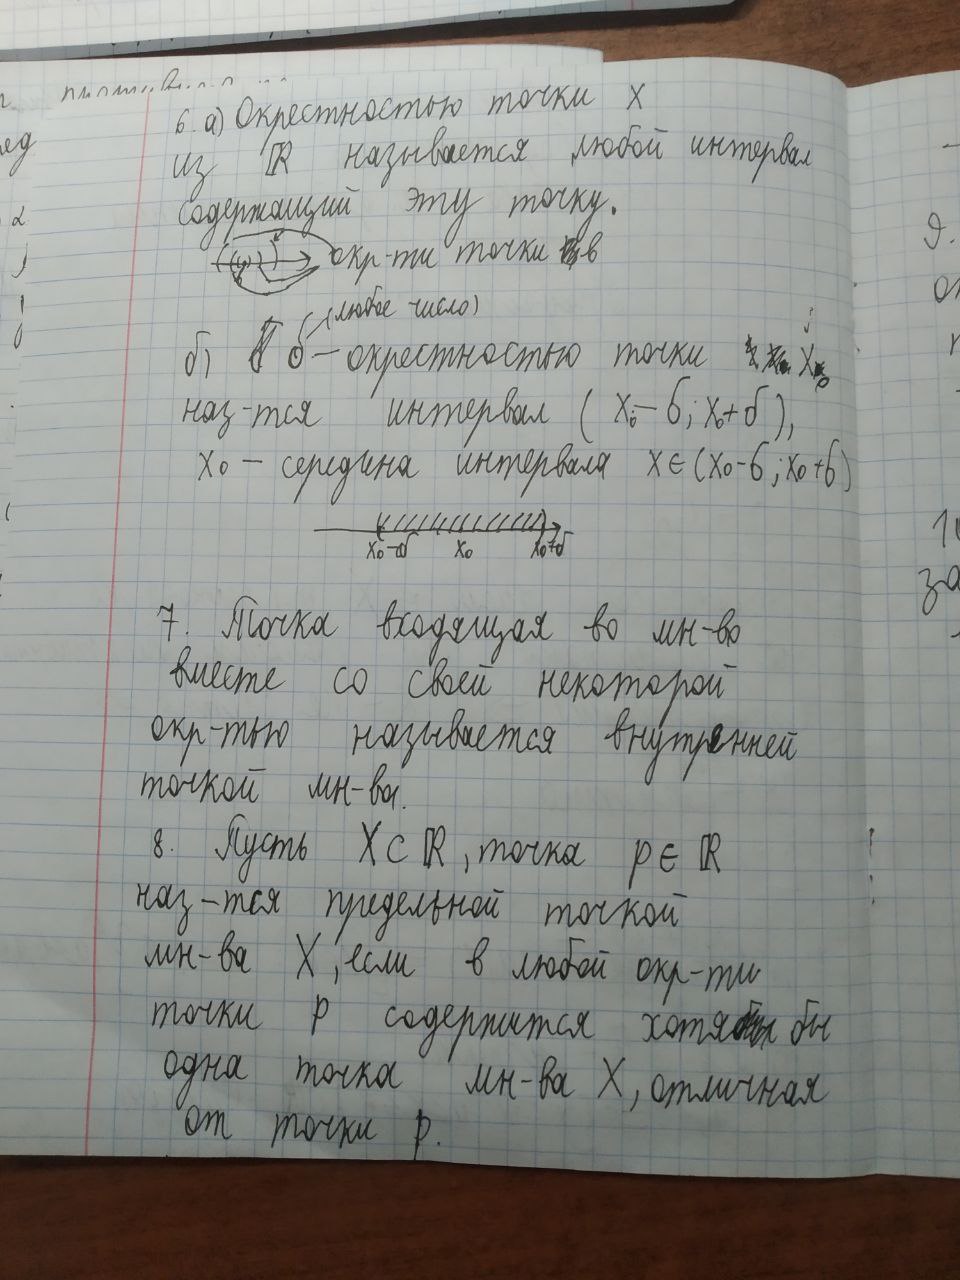 6. а) Окрестностью точки x
из ℝ называется любой интервал
содержащий эту точку.
окр-ти точки в
(любое число)
б) δ – окрестностью точки x₀
наз-тся интервал (x₀ – δ; x₀ + δ),
x₀ – середина интервала x ∈ (x₀ - δ; x₀ + δ)
x₀-δ x₀ x₀+δ
7. Точка входящая во мн-во
вместе со своей некоторой
окр-тью называется внутренней
точкой мн-ва.
8. Пусть X ⊂ ℝ, точка p ∈ ℝ
наз-тся предельной точкой
мн-ва X, если в любой окр-ти
точки p содержится хотя бы
одна точка мн-ва X, отличная
от точки p.
9.
за